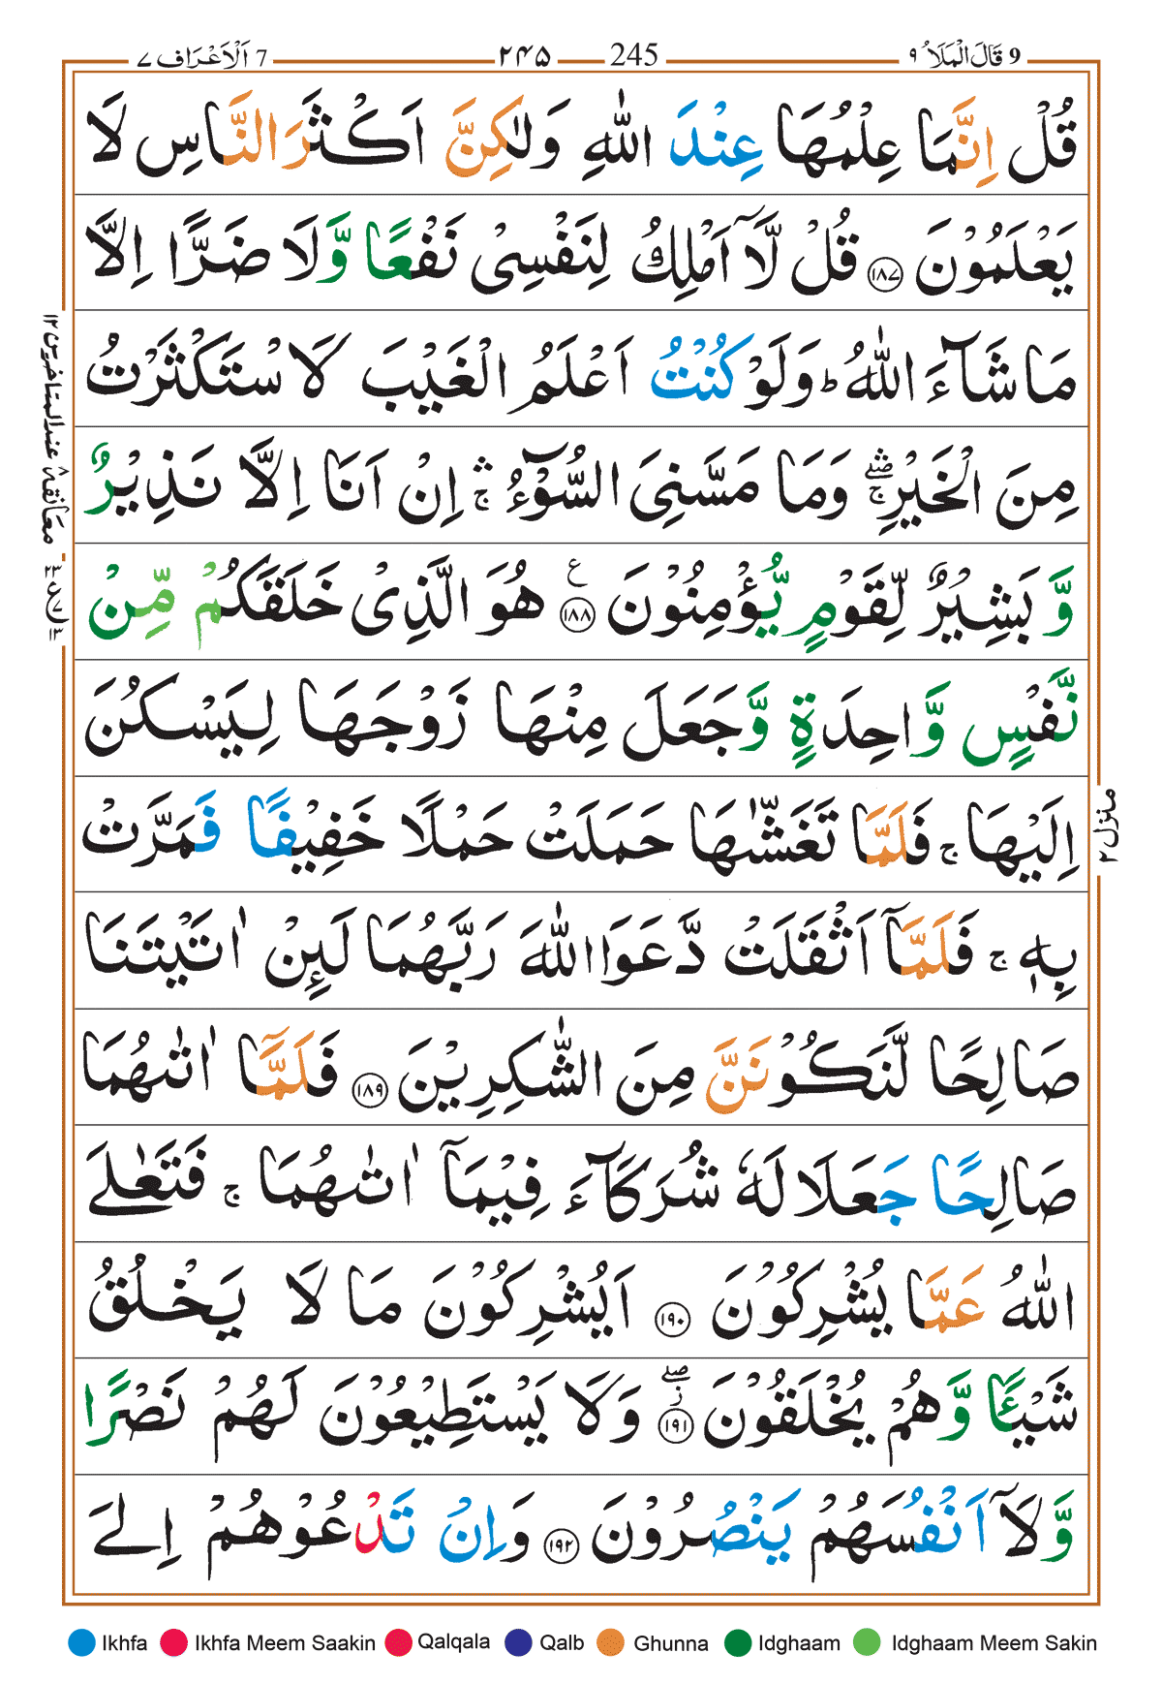 9 قَالَ الْمَلَاُ ۹ 245 ۲۴۵ 7 اَلْاَعْرَاف ۷
قُلْ اِنَّمَا عِلْمُهَا عِنْدَ اللّٰهِ وَلٰكِنَّ اَكْثَرَ النَّاسِ لَا
يَعْلَمُوْنَ ﴿۱۸۷﴾ قُلْ لَّاۤ اَمْلِكُ لِنَفْسِىْ نَفْعًا وَّلَا ضَرًّا اِلَّا
مَا شَآءَ اللّٰهُ ؕ وَلَوْ كُنْتُ اَعْلَمُ الْغَيْبَ لَا سْتَكْثَرْتُ
مِنَ الْخَيْرِ ۛۖۚ وَمَا مَسَّنِىَ السُّوْٓءُ ۛۚ اِنْ اَنَا اِلَّا نَذِيْرٌ
وَّ بَشِيْرٌ لِّقَوْمٍ يُّؤْمِنُوْنَ ﴿۱۸۸﴾ ع هُوَ الَّذِىْ خَلَقَكُمْ مِّنْ
نَّفْسٍ وَّاحِدَةٍ وَّجَعَلَ مِنْهَا زَوْجَهَا لِيَسْكُنَ
اِلَيْهَا ۚ فَلَمَّا تَغَشّٰٮهَا حَمَلَتْ حَمْلًا خَفِيْفًا فَمَرَّتْ
بِهٖ ۚ فَلَمَّاۤ اَثْقَلَتْ دَّعَوَا اللّٰهَ رَبَّهُمَا لَئِنْ اٰتَيْتَنَا
صَالِحًا لَّنَكُوْنَنَّ مِنَ الشّٰكِرِيْنَ ﴿۱۸۹﴾ فَلَمَّاۤ اٰتٰٮهُمَا
صَالِحًا جَعَلَا لَهٗ شُرَكَآءَ فِيْمَاۤ اٰتٰٮهُمَا ۚ فَتَعٰلَى
اللّٰهُ عَمَّا يُشْرِكُوْنَ ﴿۱۹۰﴾ اَيُشْرِكُوْنَ مَا لَا يَخْلُقُ
شَيْئًا وَّهُمْ يُخْلَقُوْنَ ﴿۱۹۱﴾ ۖ ز وَلَا يَسْتَطِيْعُوْنَ لَهُمْ نَصْرًا
وَّلَاۤ اَنْفُسَهُمْ يَنْصُرُوْنَ ﴿۱۹۲﴾ وَاِنْ تَدْعُوْهُمْ اِلَى
معانقة عند المتاخرين ۱۲
منزل ۲
Ikhfa Ikhfa Meem Saakin Qalqala Qalb Ghunna Idghaam Idghaam Meem Sakin